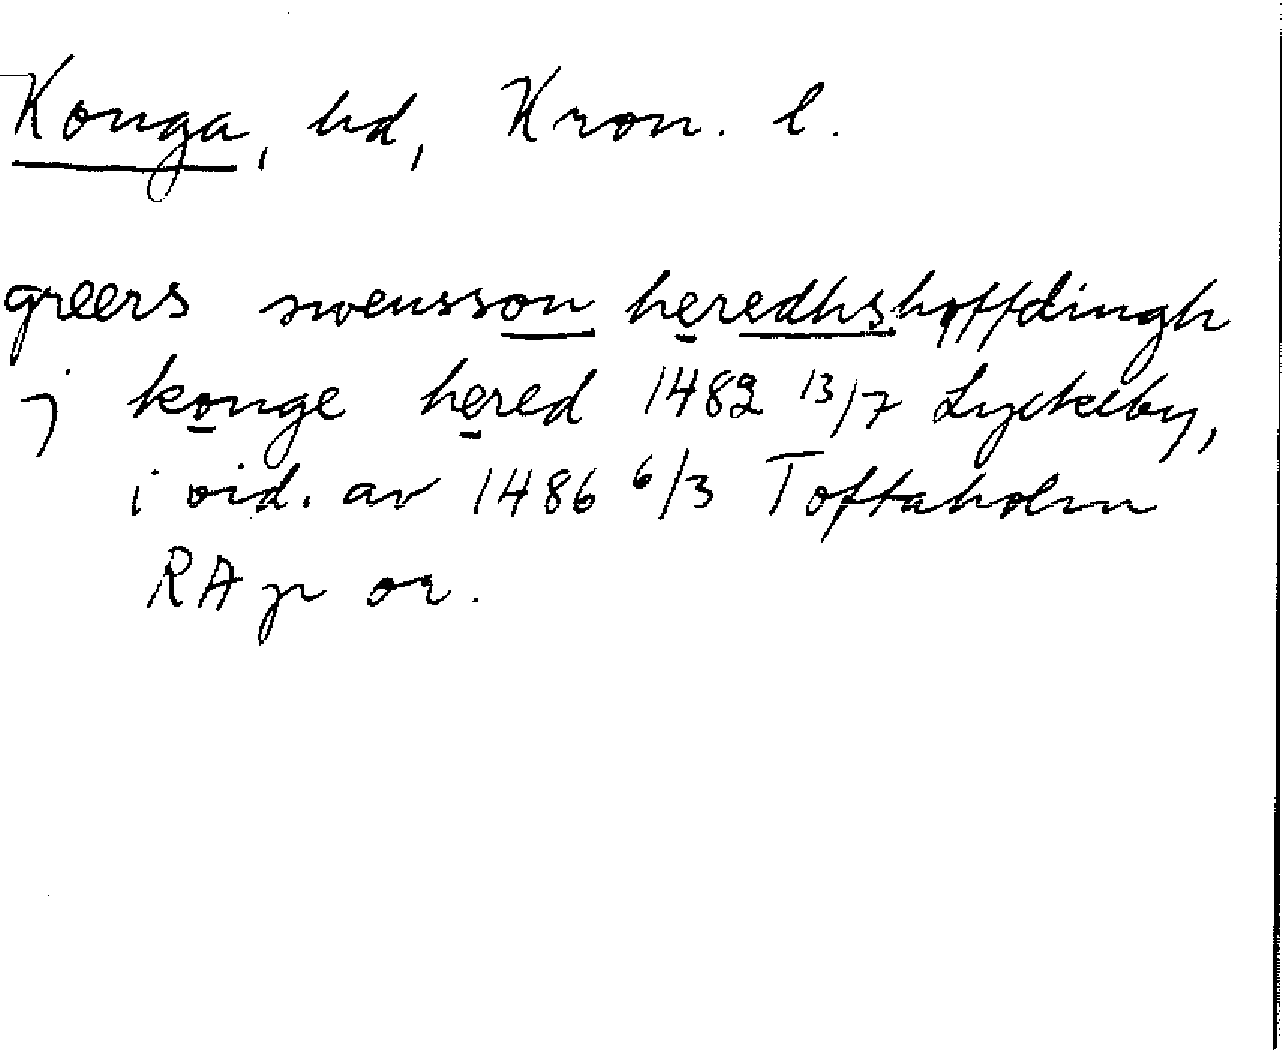 Konga, hd, Kron. l.
greers swensson heredhshøffdingh
j konge hered 1482 13/7 Lyckeby,
i vid. av 1486 6/3 Toftaholm
RAp or.